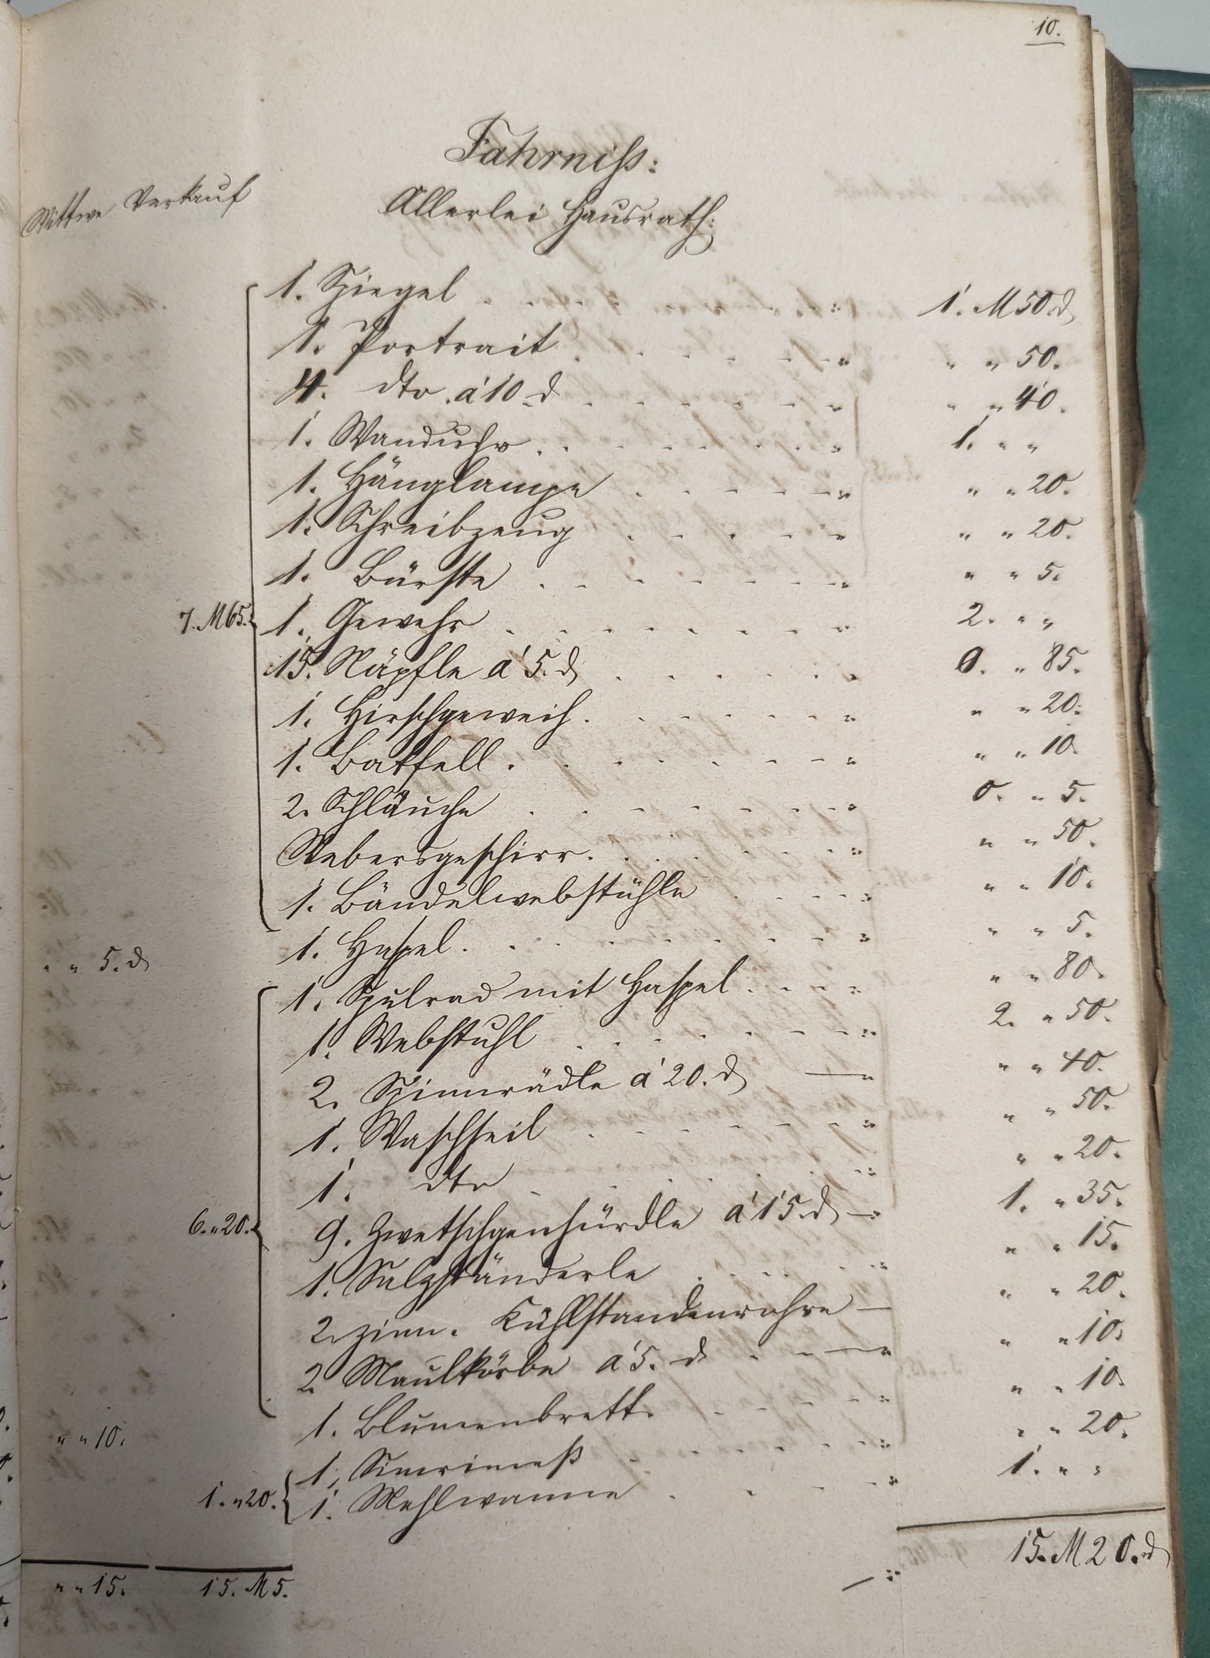 10.
Fahrniß:
Wittwe Verkauf
Allerlei Hausrath:
1. Spiegel 1. M 50. d
1. Portrait " " 50.
4. dto. á 10 d " " 40.
1. Wanduhr 1. " "
1. Hänglampe " " 20.
1. Schreibzeug " " 20.
1. Bürste " " 5.
7. M 65. 1. Gewehr 2. " "
15. Näpfle á 5. d 0. " 85.
1. Hirschgeweih " " 20.
1. " " 10.
2. Schläuche 0. " 5.
Webersgeschirr. " " 50.
1. Bändelwebstühle " " 10.
" " 5. d 1. Haspel. " " 5.
1. Spulrad mit Haspel " " 80.
1. Webstuhl 2. " 50.
2. Spinnrädle á 20. d " " 40.
1. Waschseil " " 50.
1. dto " " 20.
6. " 20. 9. Zwetschgenhürdle á 15. d 1. " 35.
1. Salzständerle " " 15.
2. zinn. Kühlstandenrohre " " 20.
2. Maulkörbe á 5. d " " 10.
" " 10. 1. Blumenbrett. " " 10.
1. Simrimeß " " 20.
1. " 20. 1. Mehlwanne 1. " "
" " 15. 15. M 5. 15. M 20. d